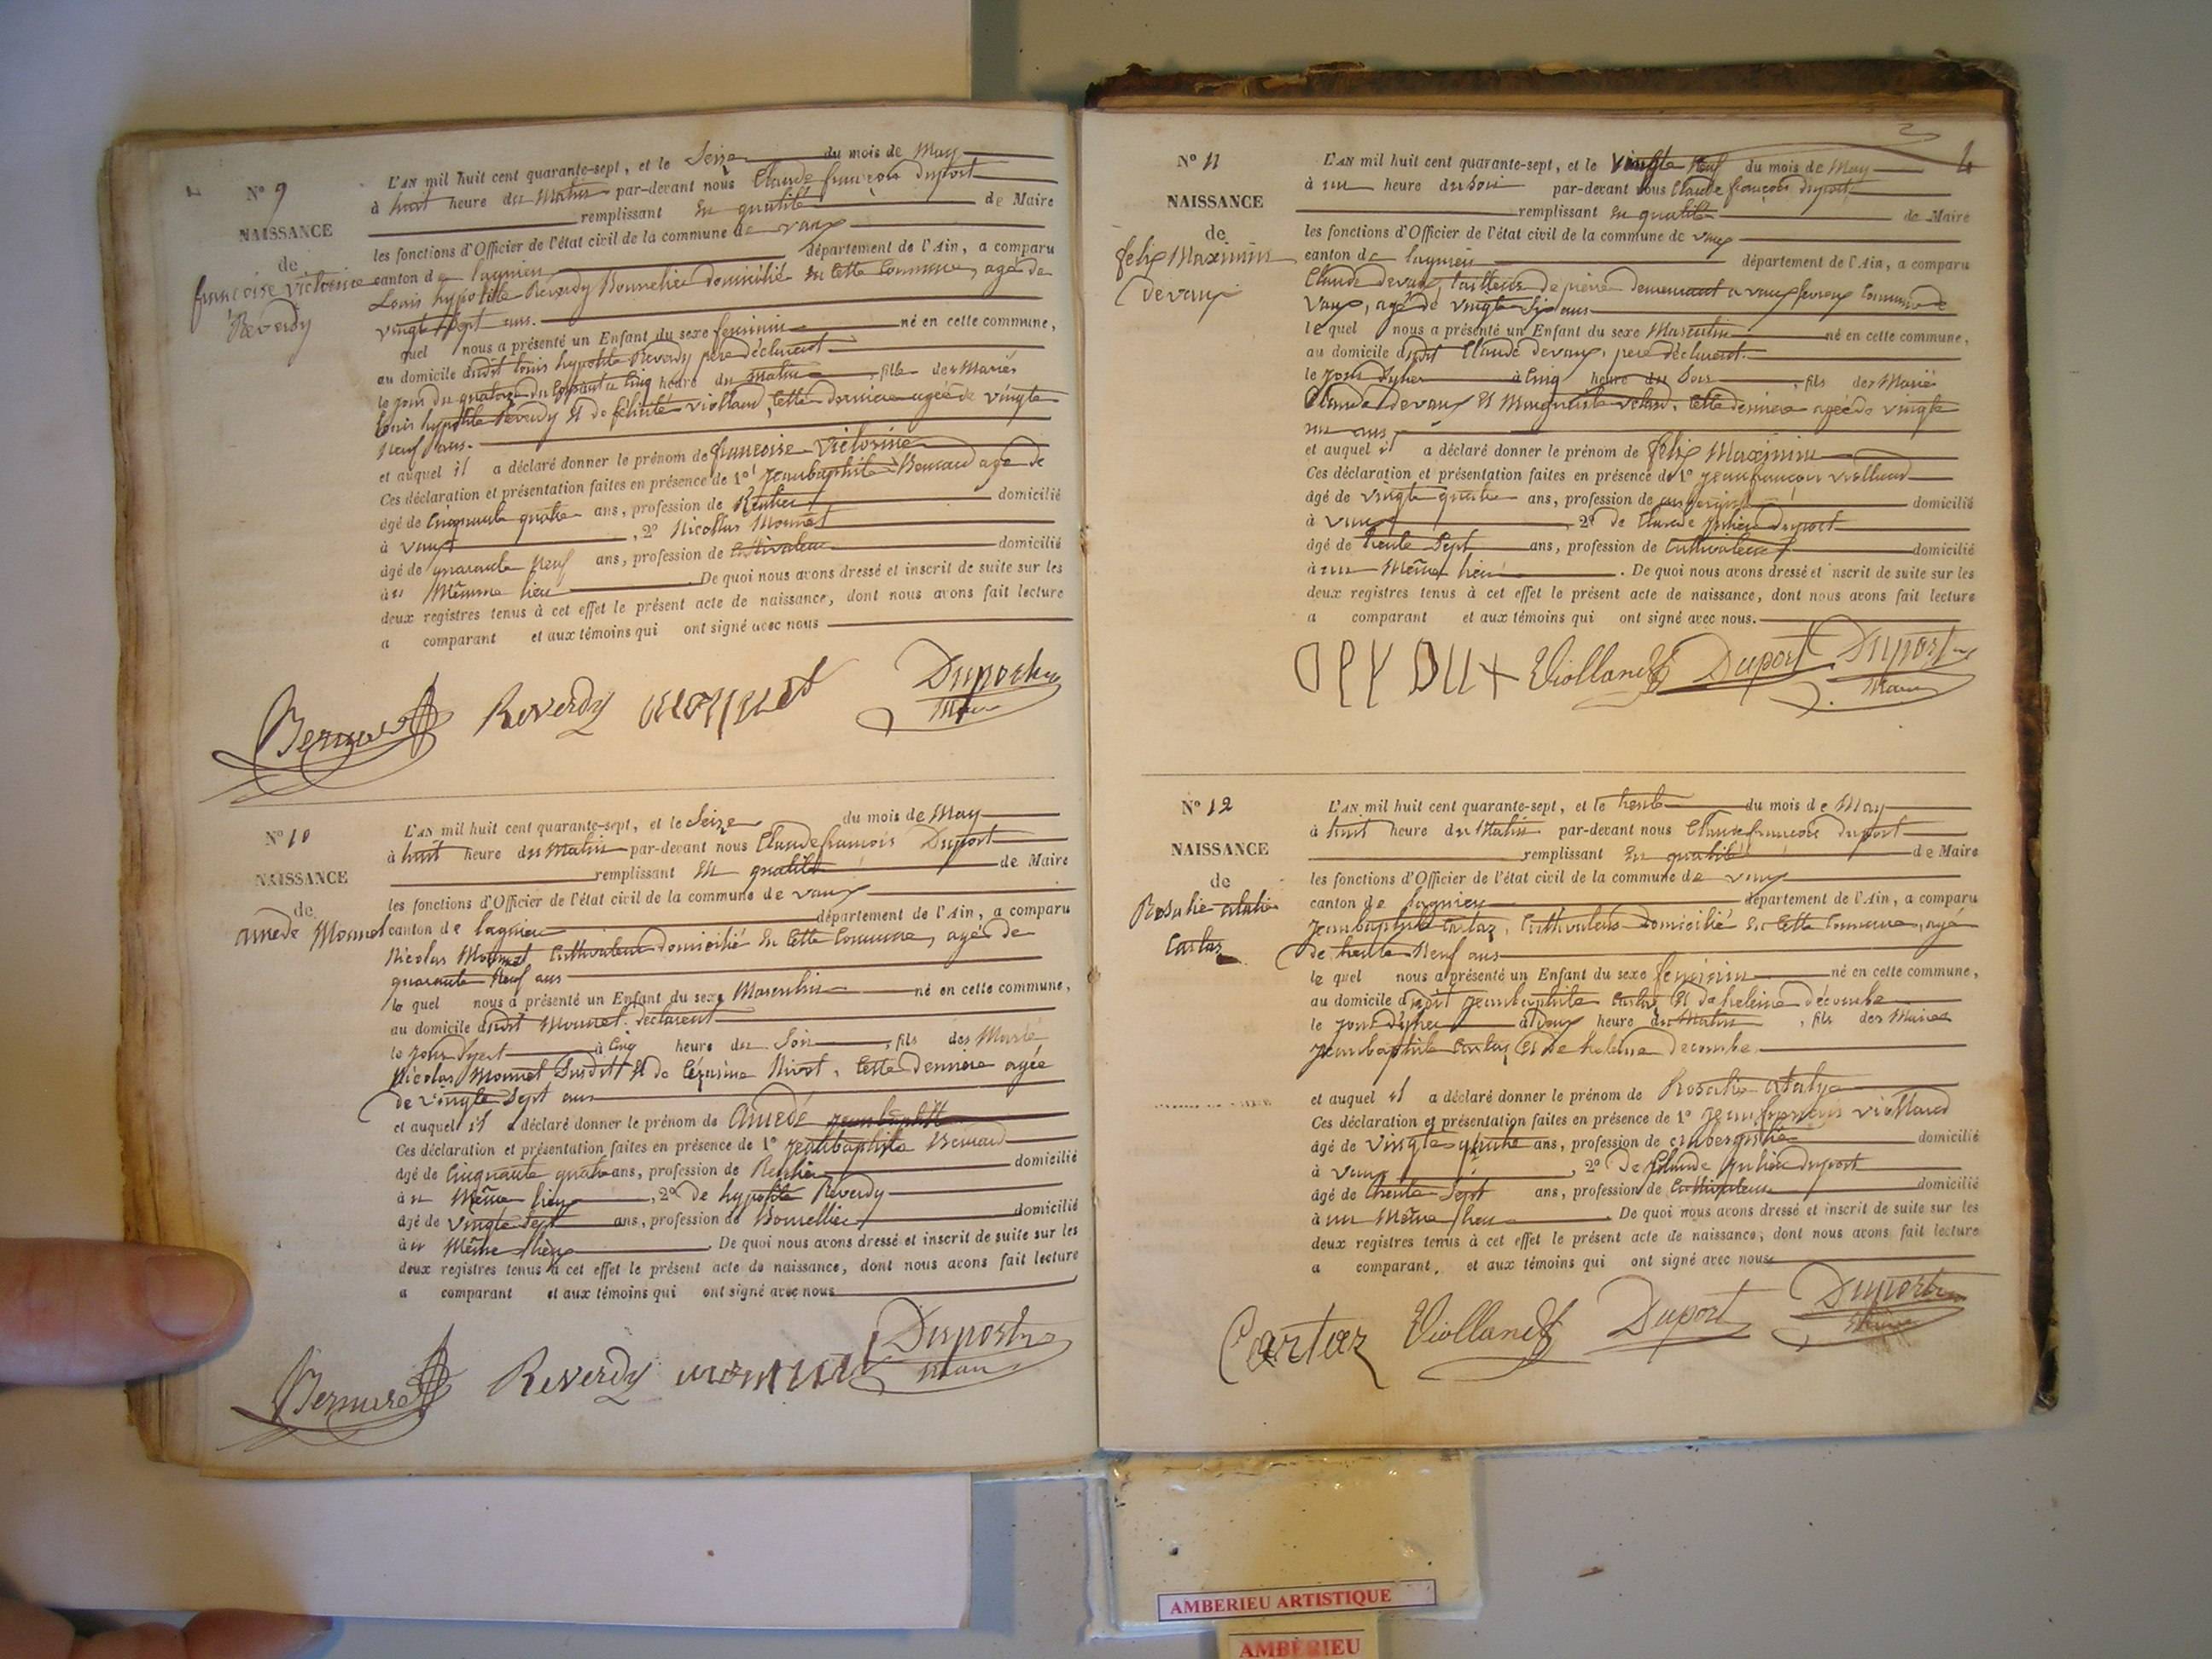 N° 9
NAISSANCE
de
francoise victorine
Reverdy
L'AN mil huit cent quarante-sept, et le Seize du mois de May
à huit heure du Matin par-devant nous Claude françois duport
remplissant en qualité de Maire
les fonctions d'Officier de l'état civil de la commune de vaux
canton de lagnieu département de l'Ain, a comparu
Louis hypolite Reverdy Bourrelier domicilié en cette Commune, agé de
vingt sept ans.
quel nous a présenté un Enfant du sexe feminin né en cette commune,
au domicile dudit louis hypolite Reverdy père déclarent
le jour du quatorze du Courant a Cinq heure du matin, fille des Mariés
louis hypolite Reverdy et de félicité violland, cette derniere agée de vingte
neuf ans.
et auquel il a déclaré donner le prénom de francoise Victorine
Ces déclaration et présentation faites en présence de 1° jeanbaptiste Bernard age de
âgé de Cinquante quatre ans, profession de Rentier domicilié
à vaux, 2° Nicollas Monnet
âgé de quarante neuf ans, profession de Cultivateur domicilié
à u Mêmme lieu. De quoi nous avons dressé et inscrit de suite sur les
deux registres tenus à cet effet le présent acte de naissance, dont nous avons fait lecture
a comparant et aux témoins qui ont signé avec nous
Bernard Reverdy monnet Duport
Maire
N° 10
NAISSANCE
de
amede Monnet
L'AN mil huit cent quarante-sept, et le Seize du mois de May
à huit heure du Matin par-devant nous Claude francois Duport
remplissant en qualité de Maire
les fonctions d'Officier de l'état civil de la commune de vaux
canton de lagnieu département de l'Ain, a comparu
Nicolas Monnet Cultivateur domicilié en Cette Commune, agé de
quarante Neuf ans
le quel nous a présenté un Enfant du sexe Masculin né en cette commune,
au domicile dudit Monnet. déclarent
le jour dyert à Cinq heure du Soir, fils des Marié
Nicolas Monnet Susdit et de Nivot, Cette derniere agée
de vingte Sept ans
et auquel il a déclaré donner le prénom de Amedé
Ces déclaration et présentation faites en présence de 1° jeanbaptiste Bernard
âgé de Cinquante quatre ans, profession de Rentier domicilié
à u Même lieu, 2° de hypolite Reverdy
âgé de vingte Sept ans, profession de Bourrellier domicilié
à u Même lieu. De quoi nous avons dressé et inscrit de suite sur les
deux registres tenus à cet effet le présent acte de naissance, dont nous avons fait lecture
a comparant et aux témoins qui ont signé avec nous
Bernard Reverdy monnet Duport
Maire
4
N° 11
NAISSANCE
de
felix Maximin
devaux
L'AN mil huit cent quarante-sept, et le vingte Neuf du mois de May
à un heure du Soir par-devant nous Claude françois duport
remplissant en qualité de Maire
les fonctions d'Officier de l'état civil de la commune de vaux
canton de lagnieu département de l'Ain, a comparu
Claude devaux, tailleur de pierre demeurant a vaux fevroux Commune de
vaux, agé de vingte Six ans
le quel nous a présenté un Enfant du sexe Masculin né en cette commune,
au domicile dudit Claude devaux, pere déclarent.
le jour dyher à Cinq heure du Soir, fils des Marié
Claude devaux et Marguerite, Cette derniere agée de vingte
un ans
et auquel il a déclaré donner le prénom de felix Maximin
Ces déclaration et présentation faites en présence de 1° jeanfrançois violland
âgé de vingte quatre ans, profession de aubergiste domicilié
à vaux, 2° de Claude julien duport
âgé de trente Sept ans, profession de Cultivateur domicilié
à un Même lieu. De quoi nous avons dressé et inscrit de suite sur les
deux registres tenus à cet effet le présent acte de naissance, dont nous avons fait lecture
a comparant et aux témoins qui ont signé avec nous.
Violland Duport Duport
Maire
N° 12
NAISSANCE
de
Rosalie atalie
Cartaz
L'AN mil huit cent quarante-sept, et le trente du mois de May
à huit heure du Matin par-devant nous Claude françois duport
remplissant en qualité de Maire
les fonctions d'Officier de l'état civil de la commune de vaux
canton de lagnieu département de l'Ain, a comparu
jeanbaptiste Cartaz, Cultivateur domicilié en Cette Commune, agé
de trente Neuf ans
le quel nous a présenté un Enfant du sexe feminin né en cette commune,
au domicile dudit jeanbaptiste Cartaz et de heleine décombe
le jour dyher a deux heure du Matin, fils des Mariés
jeanbaptiste Cartaz et de heleine decombe.
et auquel il a déclaré donner le prénom de Rosalie atalye
Ces déclaration et présentation faites en présence de 1° jeanfrançois violland
âgé de vingte quatre ans, profession de aubergiste domicilié
à vaux, 2° de Claude julien duport
âgé de trente Sept ans, profession de Cultivateur domicilié
à un Même lieu. De quoi nous avons dressé et inscrit de suite sur les
deux registres tenus à cet effet le présent acte de naissance, dont nous avons fait lecture
a comparant, et aux témoins qui ont signé avec nous
Cartaz Violland Duport Duport
Maire
AMBERIEU ARTISTIQUE
AMBÉRIEU